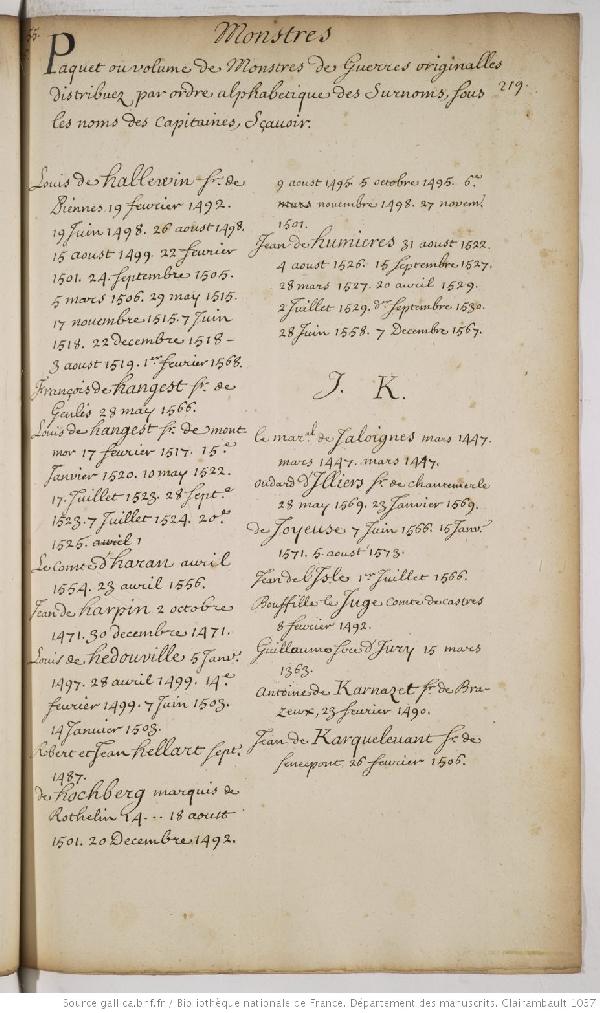 Monstres
219.
Paquet ou volume de Monstres de Guerres originalles
distribuez par ordre alphabetique des Surnoms, sous
les noms des Capitaines, Sçavoir.
Louis de hallewin sr. de
Piennes 19 fevrier 1492.
19 Juin 1498. 26 aoust 1498.
15 aoust 1499. 22 fevrier
1501. 24 septembre 1505.
5 mars 1506. 29 may 1515.
17 novembre 1515. 7 Juin
1518. 22 decembre 1518 -
3 aoust 1519. 1er fevrier 1568.
François de hangest sr. de
Genlis 28 may 1566.
Louis de hangest sr. de mont
mor 17 fevrier 1517. 15.e
Janvier 1520. 10 may 1522.
17. Juillet 1523. 28 sept.e
1523. 7 Juillet 1524. 20.e
1525. avril 1
Le Comte d'haran avril
1554. 23 avril 1556.
Jean de harpin 2 octobre
1471. 30 decembre 1471.
Louis de hedouville 5 Janv.
1497. 28 avril 1499. 14.e
fevrier 1499. 7 Juin 1503.
14 Janvier 1503.
Robert et Jean hellart sept.
1487.
de hochberg marquis de
Rothelin 14 ... 18 aoust
1501. 20 Decembre 1492.
9 aoust 1495. 5 octobre 1495. 6.e
mars novembre 1498. 27 novem.
1501.
Jean de humieres 31 aoust 1522.
4 aoust 1526. 15 septembre 1527.
28 mars 1527. 20 avril 1529.
2 Juillet 1529. der septembre 1530.
28 Juin 1558. 7 Decembre 1567.
J. K.
le mar.al de Jaloignes mars 1447.
mars 1447. mars 1447.
oudard d'Illiers sr. de chantemerle
28 may 1569. 23 Janvier 1569.
de Joyeuse 7 Juin 1566. 15 Janv.
1571. 5. aoust 1573.
Jean de l'Isle 1er Juillet 1566.
Bouffille le Juge comte de castres
8 fevrier 1492.
Guillaume sire d'Jury 15 mars
1363.
Antoine de Karnazet sr. de Bra-
zeux, 23 fevrier 1490.
Jean de Karquelevant sr. de
senespont 26 fevrier 1506.
Source gallica.bnf.fr / Bibliothèque nationale de France. Département des manuscrits. Clairambault 1037